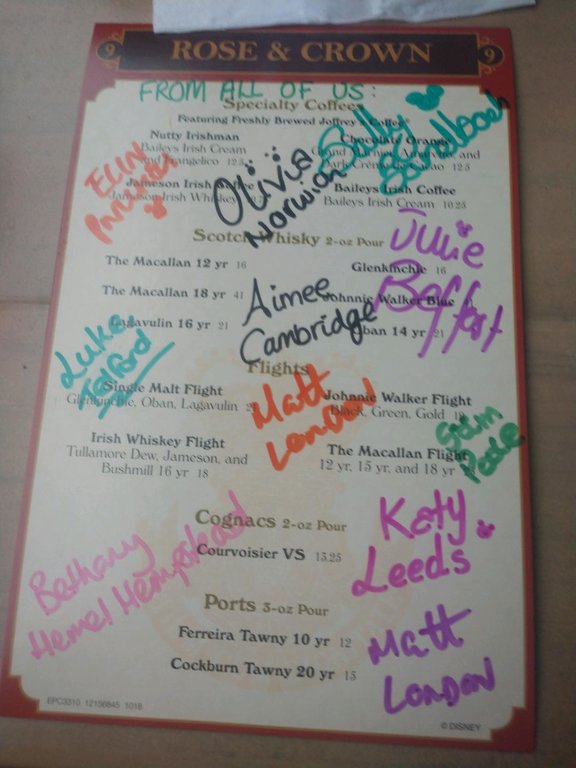 9 ROSE & CROWN 9
FROM ALL OF US:
Specialty Coffees
Featuring Freshly Brewed Joffrey's Coffee
Nutty Irishman
Baileys Irish Cream
and Frangelico 12.5
Chocolate Orange
Grand Marnier, Amaretto, and
Dark Crème de Cacao 12.5
Sally
Jameson Irish Coffee
Jameson Irish Whiskey
Baileys Irish Coffee
Baileys Irish Cream 10.25
Olivia
Norwich
Scotch Whisky 2-oz Pour
Julie
Belfast
The Macallan 12 yr 16
Glenkinchie 16
The Macallan 18 yr 41
Johnnie Walker Blue
Lagavulin 16 yr 21
Oban 14 yr 21
Aimee
Cambridge
Luke
Telford
Flights
Single Malt Flight
Glenkinchie, Oban, Lagavulin
Johnnie Walker Flight
Black, Green, Gold
Matt
London
Irish Whiskey Flight
Tullamore Dew, Jameson, and
Bushmill 16 yr 18
The Macallan Flight
12 yr, 15 yr, and 18 yr
Poole
Cognacs 2-oz Pour
Courvoisier VS 15.25
Katy
Leeds
Bethany
Hemel Hempstead
Ports 3-oz Pour
Ferreira Tawny 10 yr 12
Cockburn Tawny 20 yr 15
Matt
London
EPC3310 12156845 1018
© DISNEY